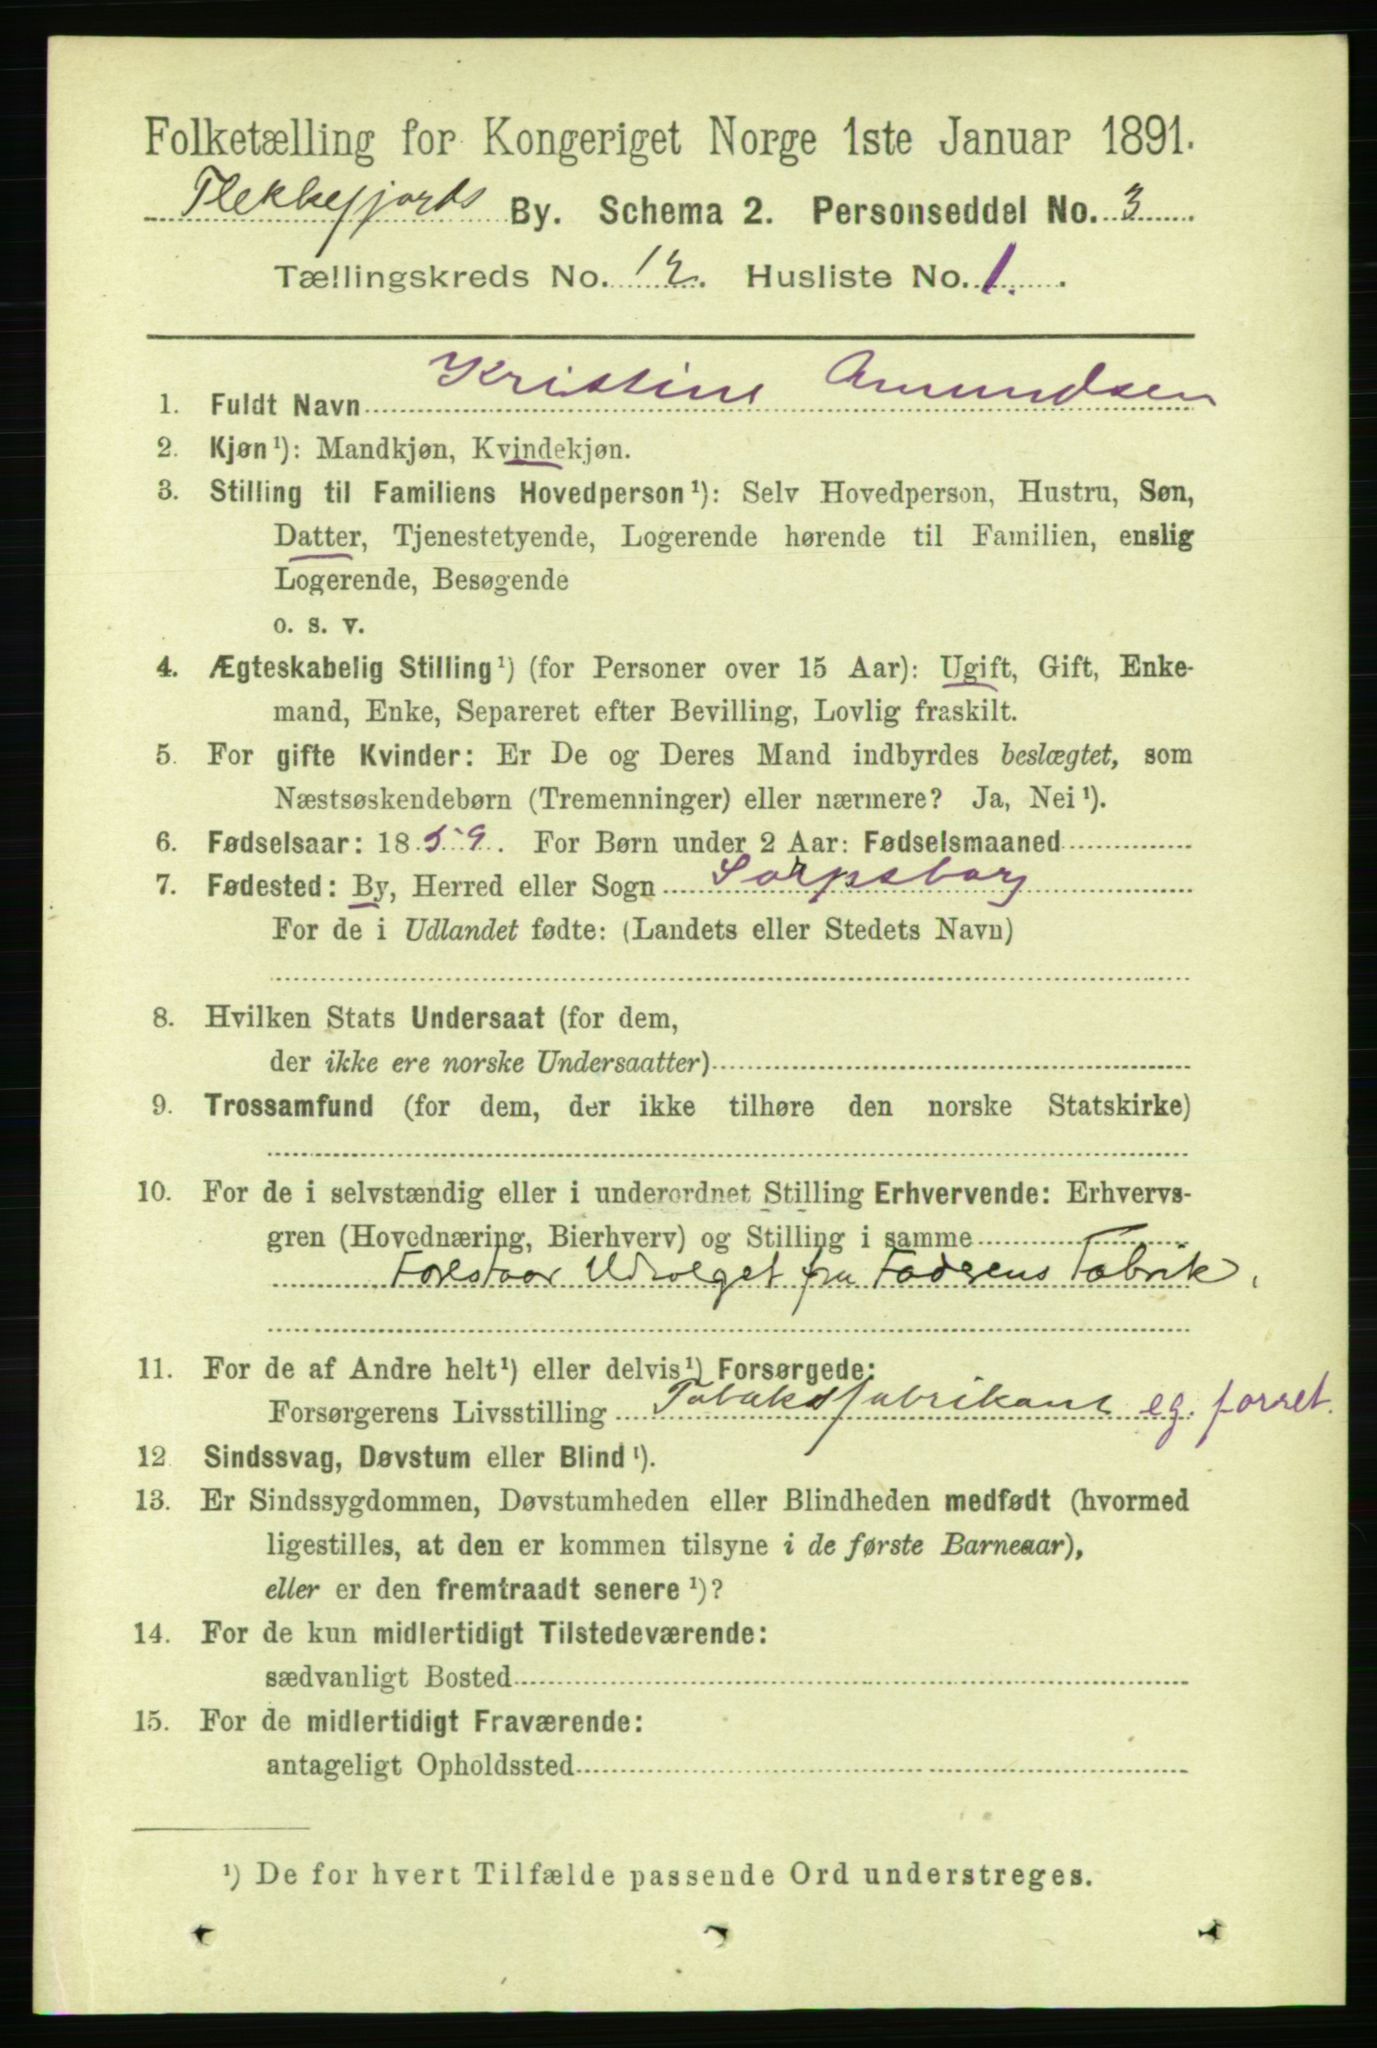 Folketælling for Kongeriget Norge 1ste Januar 1891.
Flekkefjords By. Schema 2. Personseddel No. 3
Tællingskreds No. 12. Husliste No. 1.
1. Fuldt Navn Kristine Amundsen
2. Kjøn¹): Mandkjøn, Kvindekjøn.
3. Stilling til Familiens Hovedperson¹): Selv Hovedperson, Hustru, Søn,
Datter, Tjenestetyende, Logerende hørende til Familien, enslig
Logerende, Besøgende
o. s. v.
4. Ægteskabelig Stilling¹) (for Personer over 15 Aar): Ugift, Gift, Enke-
mand, Enke, Separeret efter Bevilling, Lovlig fraskilt.
5. For gifte Kvinder: Er De og Deres Mand indbyrdes beslægtet, som
Næstsøskendebørn (Tremenninger) eller nærmere? Ja, Nei¹).
6. Fødselsaar: 1859. For Børn under 2 Aar: Fødselsmaaned
7. Fødested: By, Herred eller Sogn Sarpsborg
For de i Udlandet fødte: (Landets eller Stedets Navn)
8. Hvilken Stats Undersaat (for dem,
der ikke ere norske Undersaatter)
9. Trossamfund (for dem, der ikke tilhøre den norske Statskirke)
10. For de i selvstændig eller i underordnet Stilling Erhvervende: Erhvervs-
gren (Hovednæring, Bierhverv) og Stilling i samme
Forestaar Udsalget fra Faderens Fabrik.
11. For de af Andre helt¹) eller delvis¹) Forsørgede:
Forsørgerens Livsstilling Tobaksfabrikant eg. forret.
12 Sindssvag, Døvstum eller Blind¹).
13. Er Sindssygdommen, Døvstumheden eller Blindheden medfødt (hvormed
ligestilles, at den er kommen tilsyne i de første Barneaar),
eller er den fremtraadt senere¹)?
14. For de kun midlertidigt Tilstedeværende:
sædvanligt Bosted
15. For de midlertidigt Fraværende:
antageligt Opholdssted
¹) De for hvert Tilfælde passende Ord understreges.